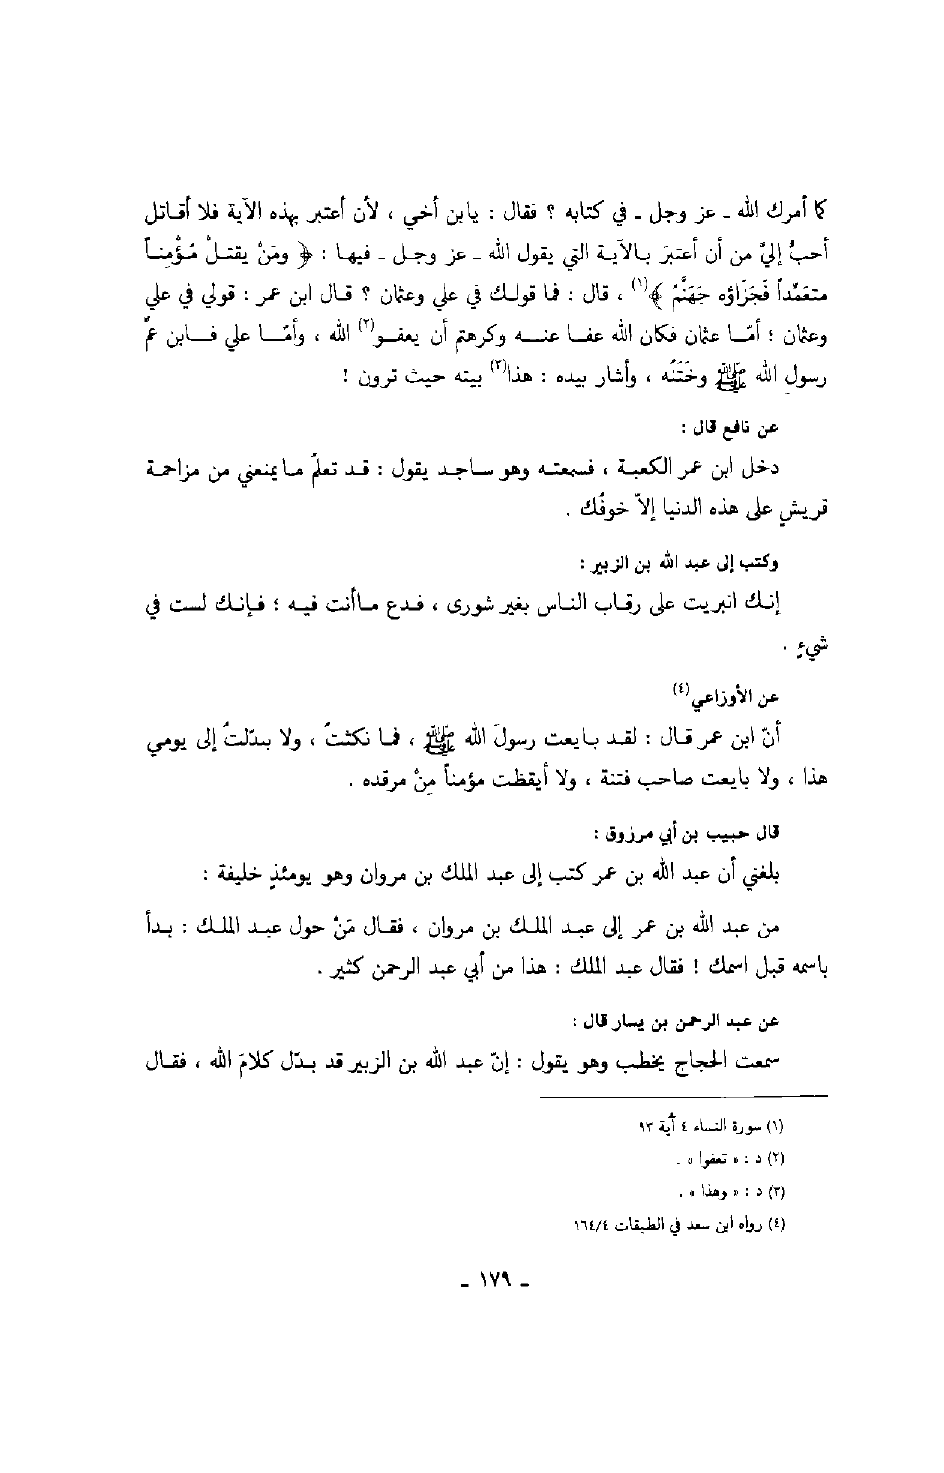 كما أمرك الله ـ عز وجل ـ في كتابه ؟ فقال : يابن أخي ، لأن أعتبر بهذه الآية فلا أقاتل
أحبُّ إليَّ من أن أعتبرَ بالآية التي يقول الله ـ عز وجل ـ فيها : ﴿ ومَنْ يقتلْ مُؤْمِناً
متعمِّداً فَجَزَاؤه جَهَنَّمُ ﴾(١) ، قال : فما قولك في علي وعثمان ؟ قال ابن عمر : قولي في علي
وعثمان ؛ أمّا عثمان فكان الله عفا عنه وكرهتم أن يعفو(٢) الله ، وأمّا علي فابن عمِّ
رسول الله ﷺ وخَتَنُه ، وأشار بيده : هذا(٣) بيته حيث ترون !
عن نافع قال :
دخل ابن عمر الكعبة ، فسمعته وهو ساجد يقول : قد تعلمُ مايمنعني من مزاحمة
قريشٍ على هذه الدنيا إلاّ خوفُك .
وكتب إلى عبد الله بن الزبير :
إنك انبريت على رقاب الناس بغير شورى ، فدع ماأنت فيه ؛ فإنك لست في
شيءٍ .
عن الأوزاعي(٤)
أنّ ابن عمر قال : لقد بايعت رسولَ الله ﷺ ، فما نكثتُ ، ولا بدّلتُ إلى يومي
هذا ، ولا بايعت صاحب فتنة ، ولا أيقظت مؤمناً مِنْ مرقده .
قال حبيب بن أبي مرزوق :
بلغني أن عبد الله بن عمر كتب إلى عبد الملك بن مروان وهو يومئذٍ خليفة :
من عبد الله بن عمر إلى عبد الملك بن مروان ، فقال مَنْ حول عبد الملك : بدأ
باسمه قبل اسمك ! فقال عبد الملك : هذا من أبي عبد الرحمن كثير .
عن عبد الرحمن بن يسار قال :
سمعت الحجاج يخطب وهو يقول : إنّ عبد الله بن الزبير قد بدّل كلامَ الله ، فقال
(١) سورة النساء ٤ أية ٩٣
(٢) د : « تعفوا » .
(٣) د : « وهذا » .
(٤) رواه ابن سعد في الطبقات ١٦٤/٤
ـ ١٧٩ ـ